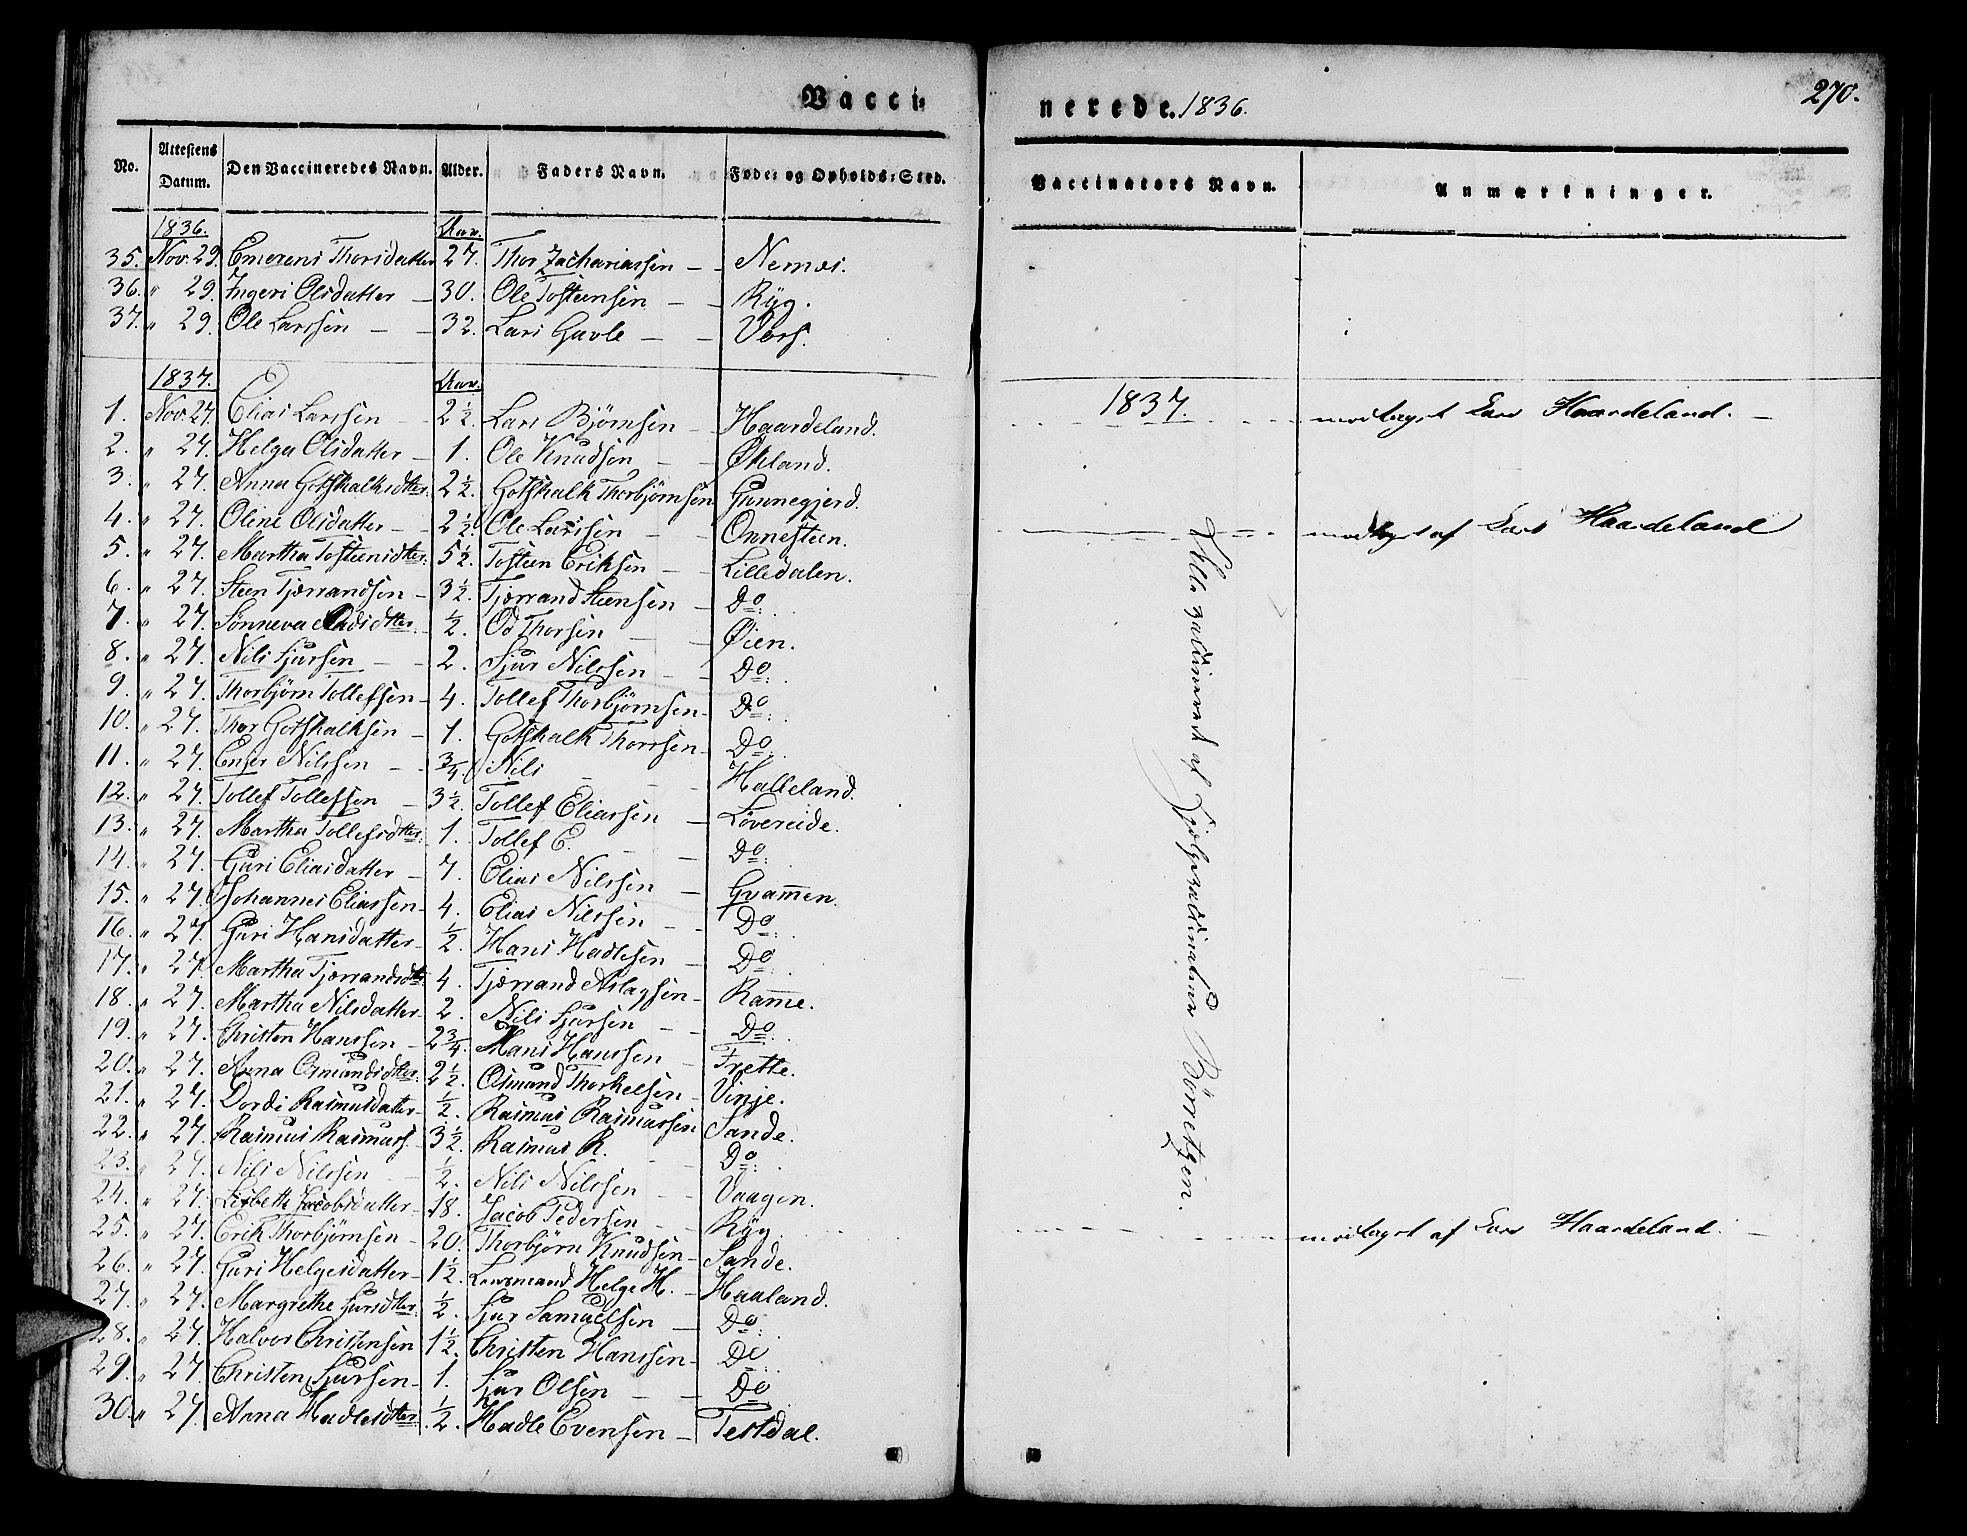 Vacci-
nerede. 1836.
270.
No. Attestens Datum. Den Vaccineredes Navn. Alder. Faders Navn. Føde- og Opholds-Sted.
Vaccinators Navn. Anmærkninger.
1836. Aar.
35. Nov. 29. Emerens Thorsdatter 27. Thor Zachariassen - - Nemes.
36. " 29. Ingeri Olsdatter - 30. Ole Tosteensen - - Ryg.
37. " 29. Ole Larssen - - 32. Lars Gavle - - Vors.
1837. Aar.
1. Nov. 27. Elias Larssen - 2½. Lars Bjørnsen - Haardeland.
1837. modtaget Lars Haardeland. -
2. " 27. Helga Olsdatter - 1. Ole Knudsen - - Økland.
3. " 27. Anna Gotskalksdtter. 2½. Gotskalk Thorbjørnsen Gunnegjerd.
4. " 27. Olene Olsdatter - 2½. Ole Larssen - - Onnesteen.
modtaget af Lars Haardeland
5. " 27. Martha Tosteensdtter. 5½. Tosteen Eriksen - - Lilledalen.
6. " 27. Steen Tjærrandsen - 3½. Tjærrand Steensen - Do.
7. " 27. Sønneva Odsdtter. ½. Od Thorsen - - Øien.
8. " 27. Nils Sjursen - - 2. Sjur Nilssen - - Do.
9. " 27. Thorbjørn Tollefsen - 4. Tollef Thorbjørnsen - Do.
10. " 27. Thor Gotskalksen - 1. Gotskalk Thorsen - Do.
11. " 27. Enser Nilssen - - ¾. Nils - - Halleland.
12. " 27. Tollef Tollefsen - 3½. Tollef Eliassen - Løvereide.
13. " 27. Martha Tollefsdtter. 1. Tollef E. - - Do.
14. " 27. Guri Eliasdatter - 7. Elias Nilssen - Gvam̄en.
15. " 27. Johannes Eliassen - 4. Elias Nilssen - Do.
16. " 27. Guri Hansdatter - ½. Hans Hadlesen - Do.
17. " 27. Martha Tjærrandsdtr. 4. Tjærrand Aslagsen - Ram̄e.
18. " 27. Martha Nilsdatter - 2. Nils Sjursen - - Do.
19. " 27. Christen Hanssen - 2¾. Hans Hanssen - Frette.
20. " 27. Anna Osmundsdtter. 2½. Osmund Thorkelsen - Vinje.
21. " 27. Dordi Rasmusdatter - ½. Rasmus Rasmussen Sande.
22. " 27. Rasmus Rasmuss. - 3½. Rasmus R. - - Do.
23. " 27. Nils Nilssen - - ½. Nils Nilssen - - Vaagen.
24. " 27. Lisbeth Jacobsdatter. 18. Jacob Pedersen - - Ryg.
modtaget af Lars Haardeland. -
25. " 27. Erik Thorbjørnsen - 20. Thorbjørn Knudsen - Sande.
26. " 27. Guri Helgesdatter - 1½. Lensmand Helge H. - Haaland.
27. " 27. Margrethe Sjursdtter. ½. Sjur Samuelsen - Do.
28. " 27. Halvor Christensen 1½. Christen Hanssen - Do.
29. " 27. Christen Sjursen - 1. Sjur Olsen - - Do.
30. " 27. Anna Hadlesdtter. ½. Hadle Evensen - Testdal.
Alle vaccineret af Hjelpevaccinateur Børretzen.